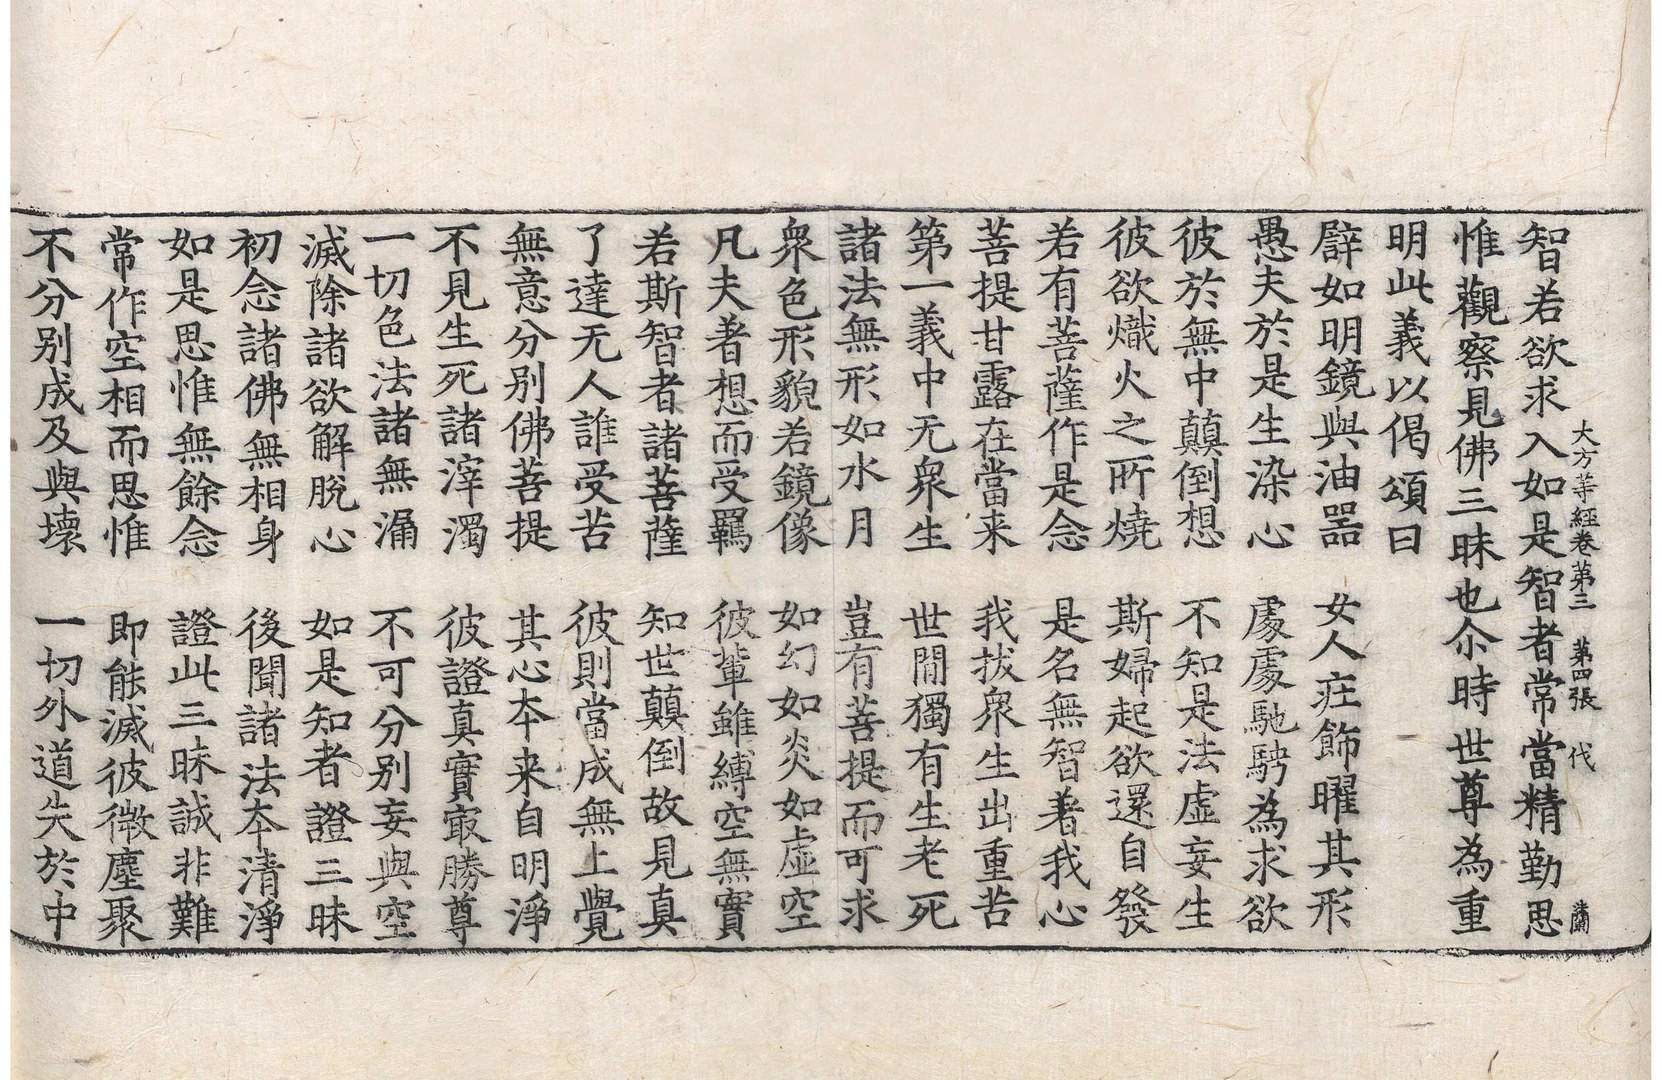 大方等経卷第三　第四張　代　蘭
智若欲求入如是智者常當精勤思
惟觀察見佛三昧也尒時世尊為重
明此義以偈頌曰
譬如明鏡與油器　女人莊飾曜其形
愚夫於是生染心　處處馳騁為求欲
彼於無中顛倒想　不知是法虛妄生
彼欲熾火之所燒　斯婦起欲還自發
若有菩薩作是念　是名無智著我心
菩提甘露在當来　我拔衆生出重苦
第一義中无衆生　世間獨有生老死
諸法無形如水月　豈有菩提而可求
衆色形貌若鏡像　如幻如炎如虛空
凡夫著想而受羈　彼輩雖縛空無實
若斯智者諸菩薩　知世顛倒故見真
了達无人誰受苦　彼則當成無上覺
無意分別佛菩提　其心夲来自明淨
不見生死諸滓濁　彼證真實㝡勝尊
一切色法諸無漏　不可分別妄與空
滅除諸欲解脫心　如是知者證三昧
初念諸佛無相身　後聞諸法夲清淨
如是思惟無餘念　證此三昧誠非難
常作空相而思惟　即能滅彼微塵聚
不分別成及與壞　一切外道失於中